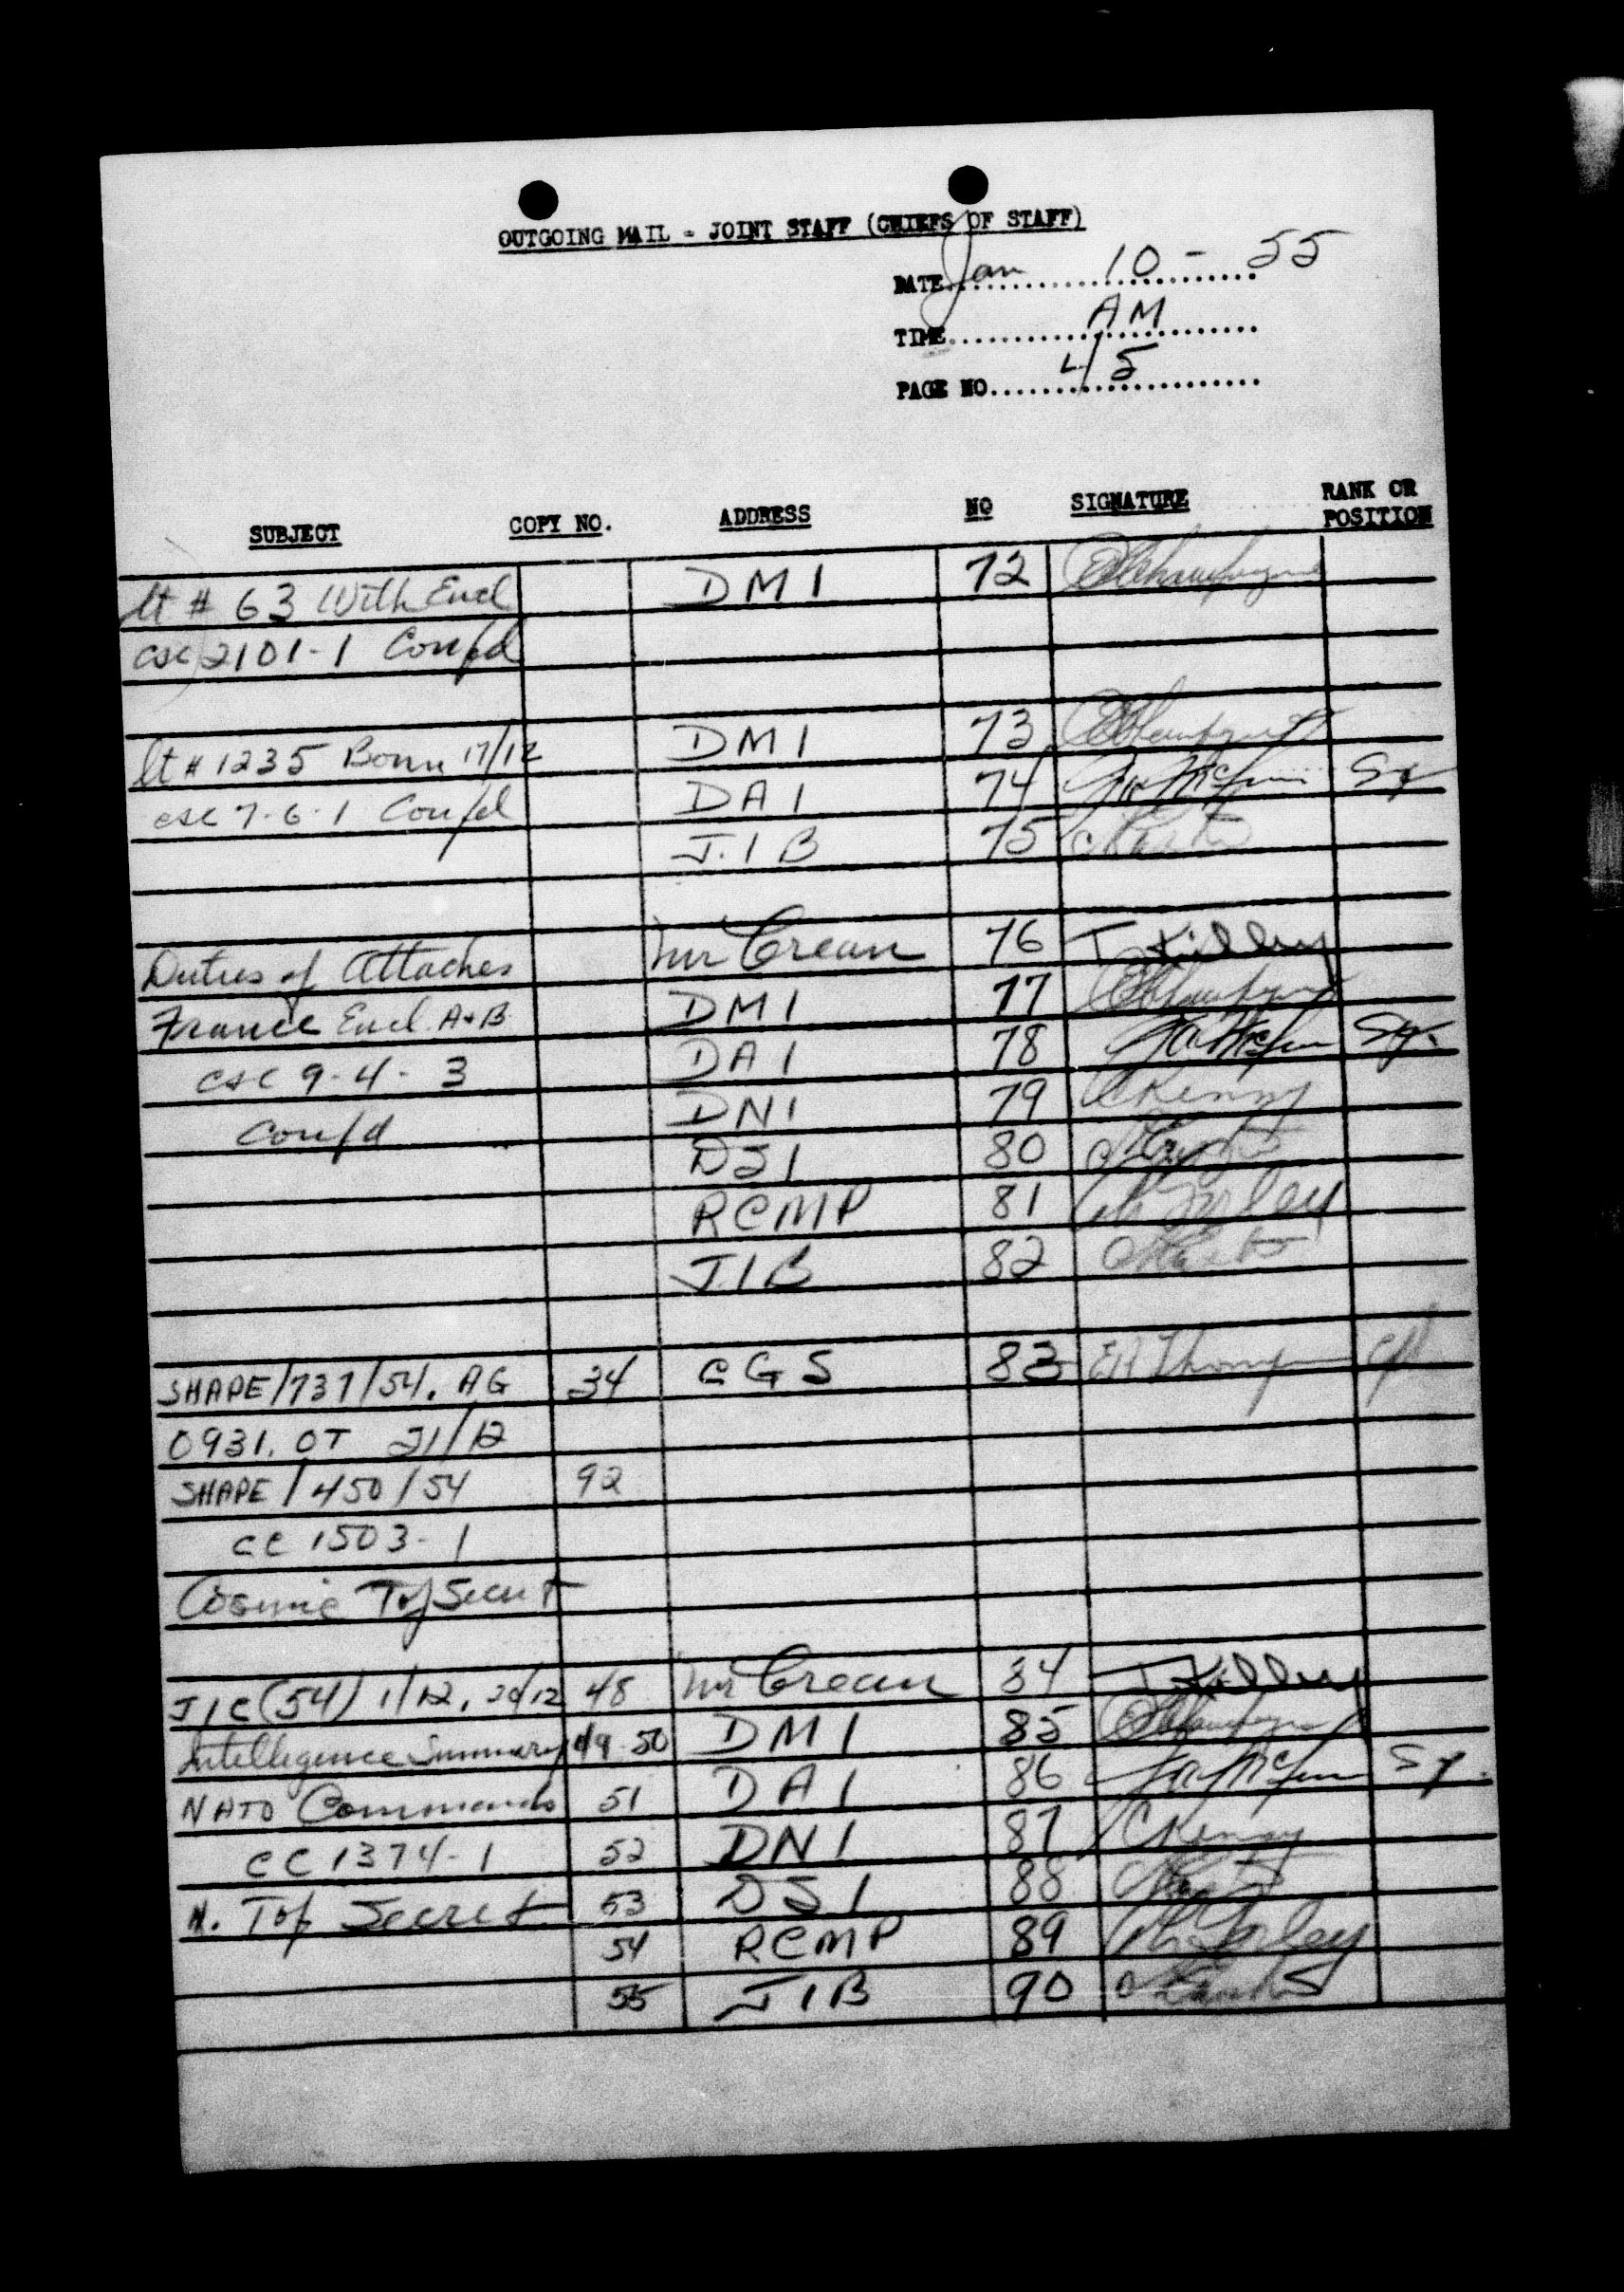 OUTGOING MAIL - JOINT STAFF (CHIEFS OF STAFF)
DATE Jan 10 - 55
TIME AM
PAGE NO 45
SUBJECT COPY NO. ADDRESS NO SIGNATURE RANK OR POSITION
lt # 63 With Encl DMI 72
csc 2101-1 Confd
lt # 1235 Bonn 17/12 DMI 73
csc 7-6-1 Confd DAI 74
J.I B 75
Duties of Attaches Mr Crean 76 T Killey
France Encl. A+B DMI 77
csc 9-4-3 DAI 78
Confd DNI 79 C Kenny
DSI 80
RCMP 81
JIB 82
SHAPE/737/54. AG 34 CGS 83 Cpl
0931. OT 21/12
SHAPE/450/54 92
CC 1503-1
Cosmic Top Secret
JIC(54) 1/12, 20/12 48 Mr Crean 84 T Killey
Intelligence Summary 49-50 DMI 85
NATO Commands 51 DAI 86
CC 1374-1 52 DNI 87 C Kenny
N. Top Secret 53 DSI 88
54 RCMP 89
55 JIB 90